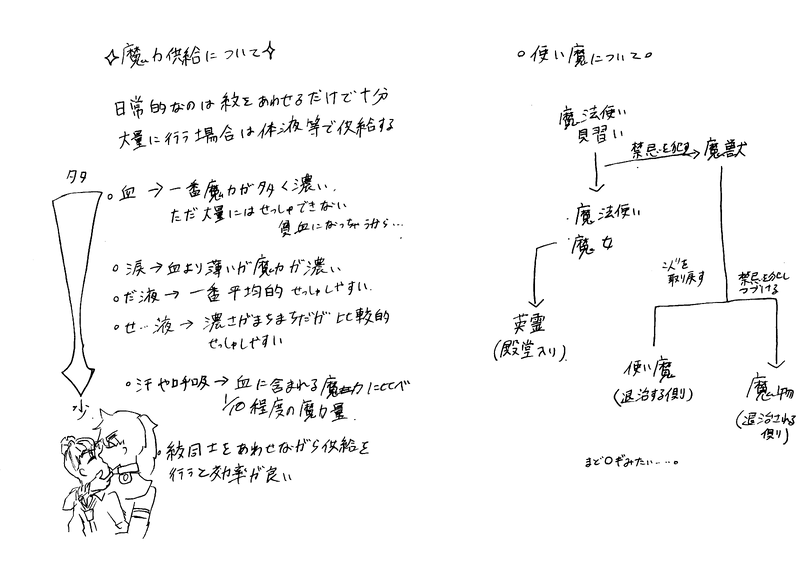 ✧魔力供給について✧
日常的なのは紋をあわせるだけで十分
大量に行う場合は体液等で供給する
多
○血→一番魔力が多く濃い。
ただ大量にはせっしゅできない
貧血になっちゃうから…
○涙→血より薄いが魔力が濃い
○だ液→一番平均的 せっしゅしやすい.
○せ…液→濃さがまちまちだが比較的
せっしゅしやすい
○汗や呼吸→血に含まれる魔力に比べ
1/10程度の魔力量
少
○紋同士をあわせながら供給を
行うと効率が良い
○使い魔について○
魔法使い
見習い
禁忌を犯す
魔獣
・魔法使い
・魔女
英霊
(殿堂入り)
心を
取り戻す
禁忌を犯し
つづける
使い魔
(退治する側)
魔物
(退治される
側)
まど○ぎみたい……。